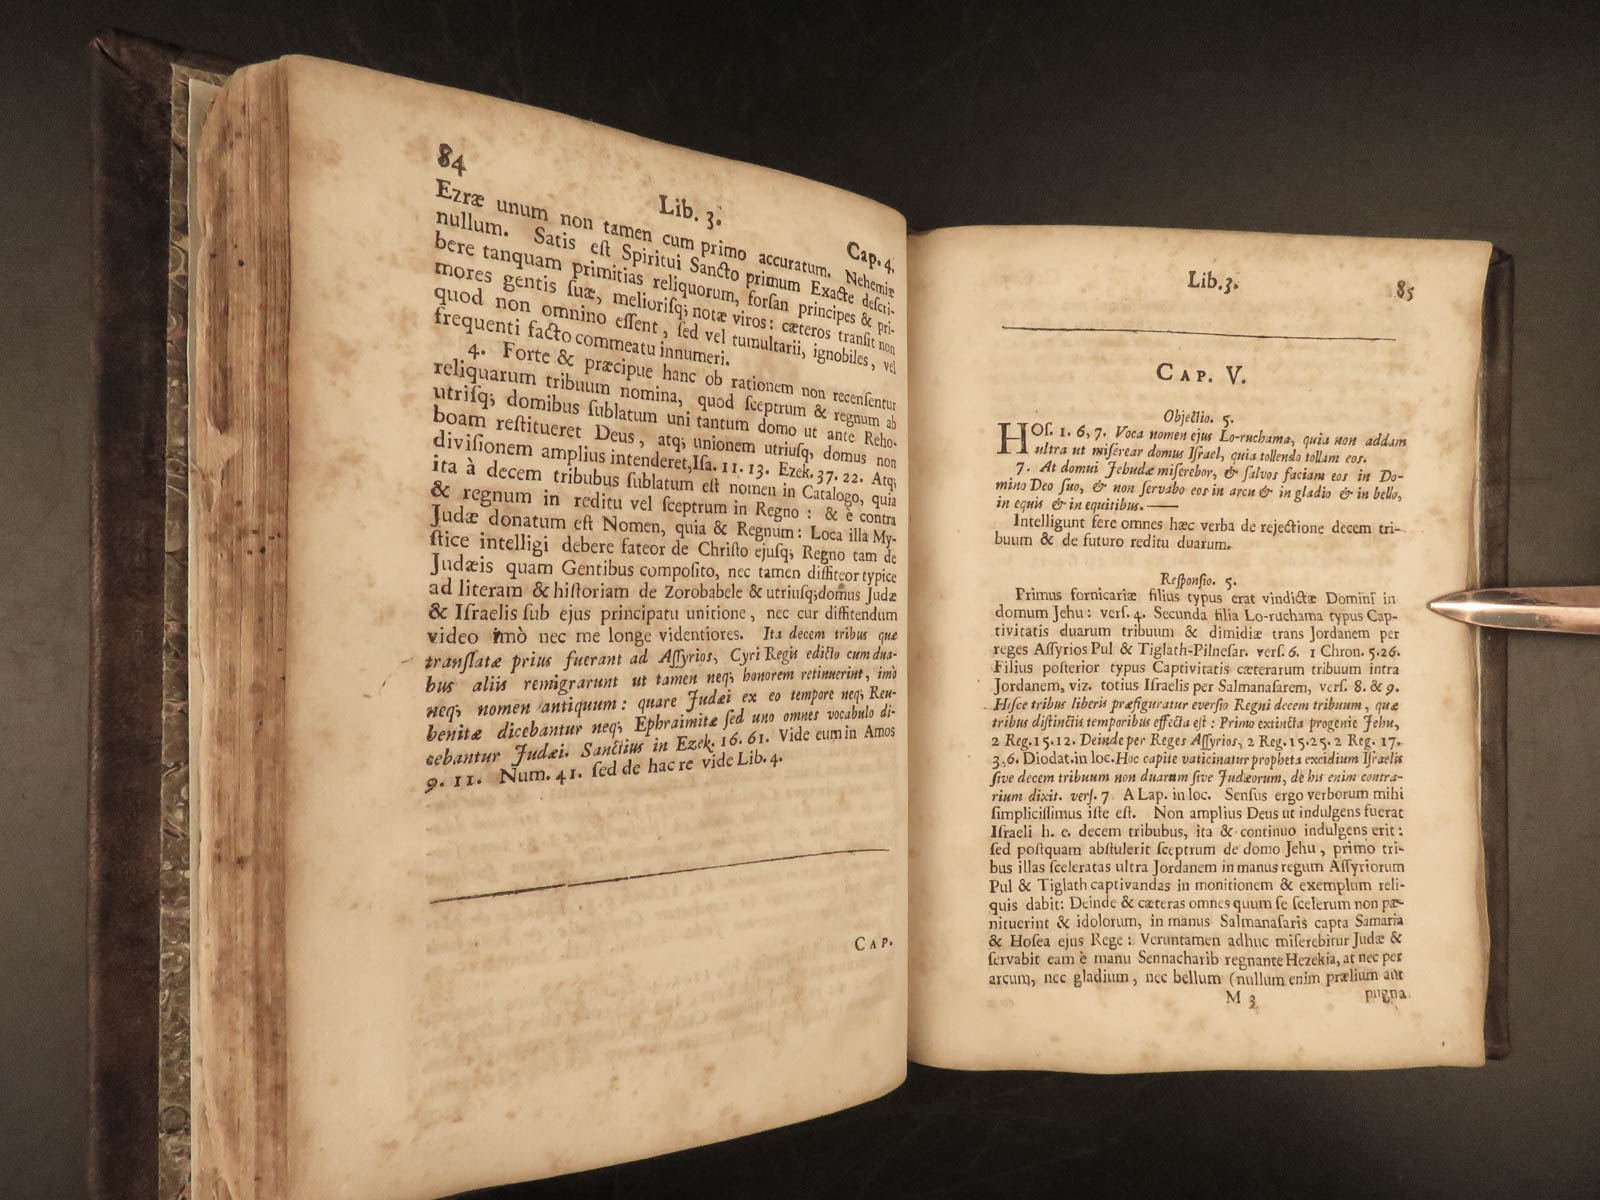 84
Lib. 3.
Cap. 4.
Ezræ unum non tamen cum primo accuratum. Nehemiæ
nullum. Satis eſt Spiritui Sancto primum Exacte deſcri-
bere tanquam primitias reliquorum, forſan principes & pri-
mores gentis ſuæ, melioriſq; notæ viros: cæteros tranſit non
quod non omnino eſſent, ſed vel tumultarii, ignobiles, vel
frequenti facto commeatu innumeri.
4. Forte & præcipue hanc ob rationem non recenſentur
reliquarum tribuum nomina, quod ſceptrum & regnum ab
utriſq; domibus ſublatum uni tantum domo ut ante Reho-
boam reſtitueret Deus, atq; unionem utriuſq; domus non
diviſionem amplius intenderet, Iſa. 11. 13. Ezek. 37. 22. Atq;
ita à decem tribubus ſublatum eſt nomen in Catalogo, quia
& regnum in reditu vel ſceptrum in Regno: & è contra
Judæ donatum eſt Nomen, quia & Regnum: Loca illa My-
ſtice intelligi debere fateor de Chriſto ejuſq; Regno tam de
Judæis quam Gentibus compoſito, nec tamen diffiteor typice
ad literam & hiſtoriam de Zorobabele & utriuſq; domus Judæ
& Iſraelis ſub ejus principatu unitione, nec cur diffitendum
video imò nec me longe videntiores. Ita decem tribus quæ
tranſlatæ prius fuerant ad Aſſyrios, Cyri Regis edicto cum dua-
bus aliis remigrarunt ut tamen neq; honorem retinuerint, imò
neq; nomen antiquum: quare Judæi ex eo tempore neq; Reu-
benitæ dicebantur neq; Ephraimitæ ſed uno omnes vocabulo di-
cebantur Judæi. Sanctius in Ezek. 16. 61. Vide eum in Amos
9. 11. Num. 41. ſed de hac re vide Lib. 4.
CAP.
Lib. 3.
85
CAP. V.
Objectio. 5.
HOſ. 1. 6, 7. Voca nomen ejus Lo-ruchama, quia non addam
ultra ut miſerear domus Iſrael, quia tollendo tollam eos.
7. At domui Jehudæ miſerebor, & ſalvos faciam eos in Do-
mino Deo ſuo, & non ſervabo eos in arcu & in gladio & in bello,
in equis & in equitibus.——
Intelligunt fere omnes hæc verba de rejectione decem tri-
buum & de futuro reditu duarum.
Reſponſio. 5.
Primus fornicariæ filius typus erat vindictæ Domini in
domum Jehu: verſ. 4. Secunda filia Lo-ruchama typus Cap-
tivitatis duarum tribuum & dimidiæ trans Jordanem per
reges Aſſyrios Pul & Tiglath-Pilneſar. verſ. 6. 1 Chron. 5.26.
Filius poſterior typus Captivitatis cæterarum tribuum intra
Jordanem, viz. totius Iſraelis per Salmanaſarem, verſ. 8. & 9.
Hiſce tribus liberis præfiguratur everſio Regni decem tribuum, quæ
tribus diſtinctis temporibus effecta eſt: Primo extincta progenie Jehu,
2 Reg. 15.12. Deinde per Reges Aſſyrios, 2 Reg. 15.25. 2 Reg. 17.
3,6. Diodat. in loc. Hoc capite vaticinatur propheta excidium Iſraelis
ſive decem tribuum non duarum ſive Judæorum, de his enim contra-
rium dixit. verſ. 7 A Lap. in loc. Senſus ergo verborum mihi
ſimpliciſſimus iſte eſt. Non amplius Deus ut indulgens fuerat
Iſraeli h. e. decem tribubus, ita & continuo indulgens erit:
ſed poſtquam abſtulerit ſceptrum de domo Jehu, primo tri-
bus illas ſceleratas ultra Jordanem in manus regum Aſſyriorum
Pul & Tiglath captivandas in monitionem & exemplum reli-
quis dabit: Deinde & cæteras omnes quum ſe ſcelerum non pæ-
nituerint & idolorum, in manus Salmanaſaris capta Samaria
& Hoſea ejus Rege: Veruntamen adhuc miſerebitur Judæ &
ſervabit eam è manu Sennacharib regnante Hezekia, at nec per
arcum, nec gladium, nec bellum (nullum enim prælium aut
M 3
pugna